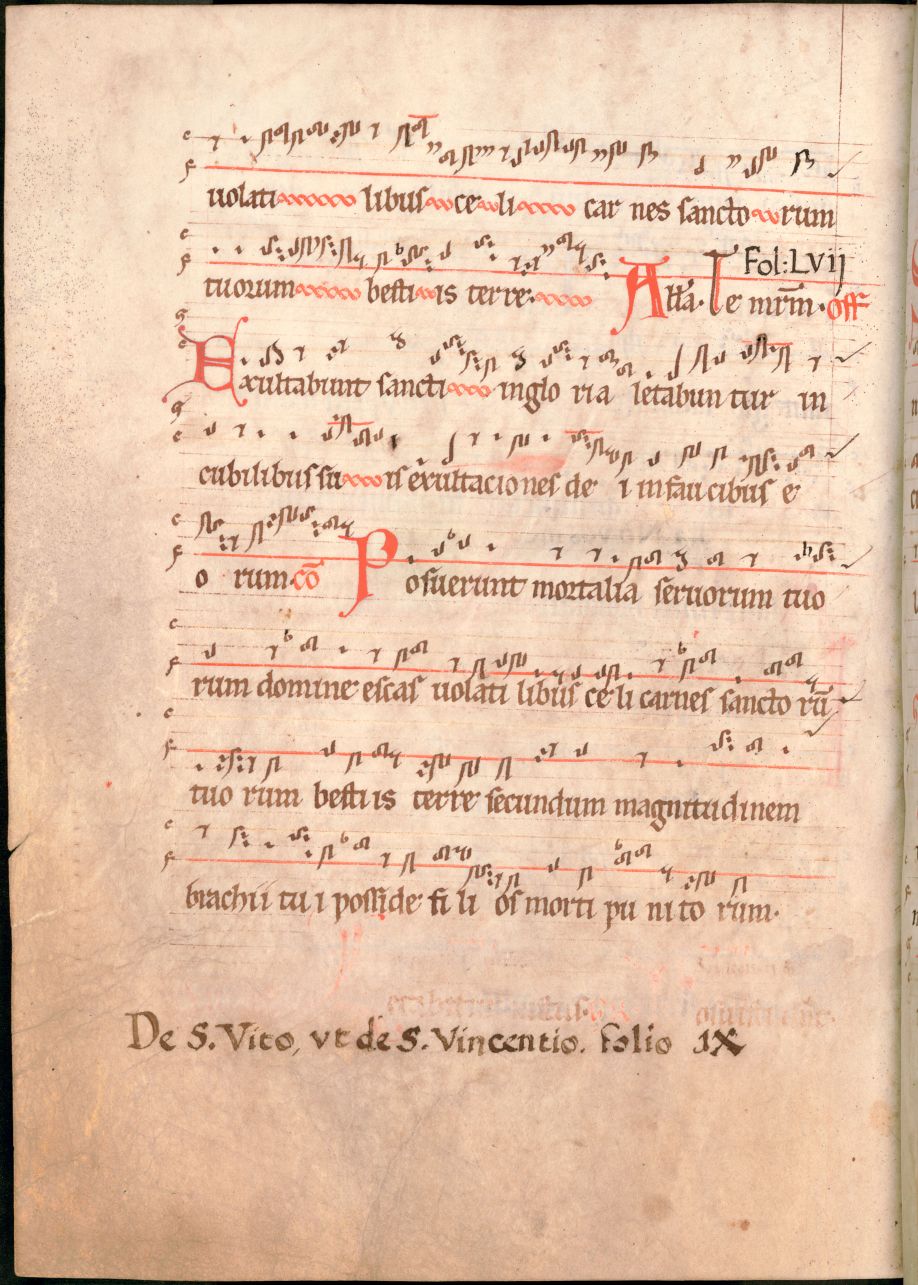 uolati libus ce li car nes sancto rum
tuorum besti is terre. Fol: LVij
Alla. Te mr̄m. off
Exultabunt sancti in glo ria letabun tur in
cubilibus su is exultacio nes de i in fau cibus e
o rum. cō Posuerunt mortalia seruorum tuo
rum domine escas uolati libus ce li carnes sancto rū
tuo rum besti is terre secundum magnitudinem
brachii tu i posside fi li os morti pu ni to rum.
De S. Vito, vt de S. Vincentio. folio 1X